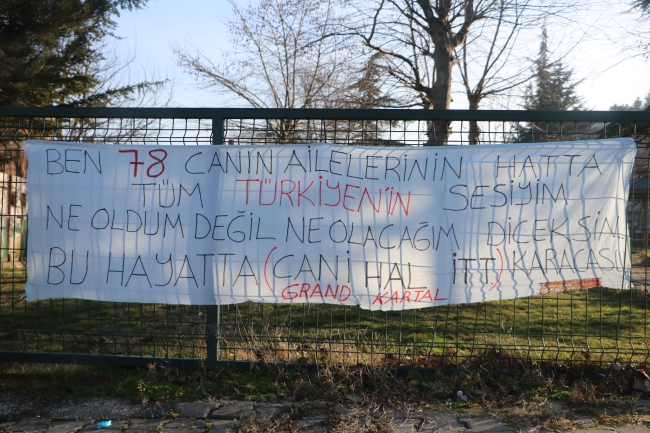 BEN 78 CANIN AİLELERİNİN HATTA
TÜM TÜRKİYEN'İN SESİYİM
NE OLDUM DEĞİL NE OLACAĞIM DİCEKSİN
BU HAYATTA (CANİ HAL İTT) KARACASU
GRAND KARTAL